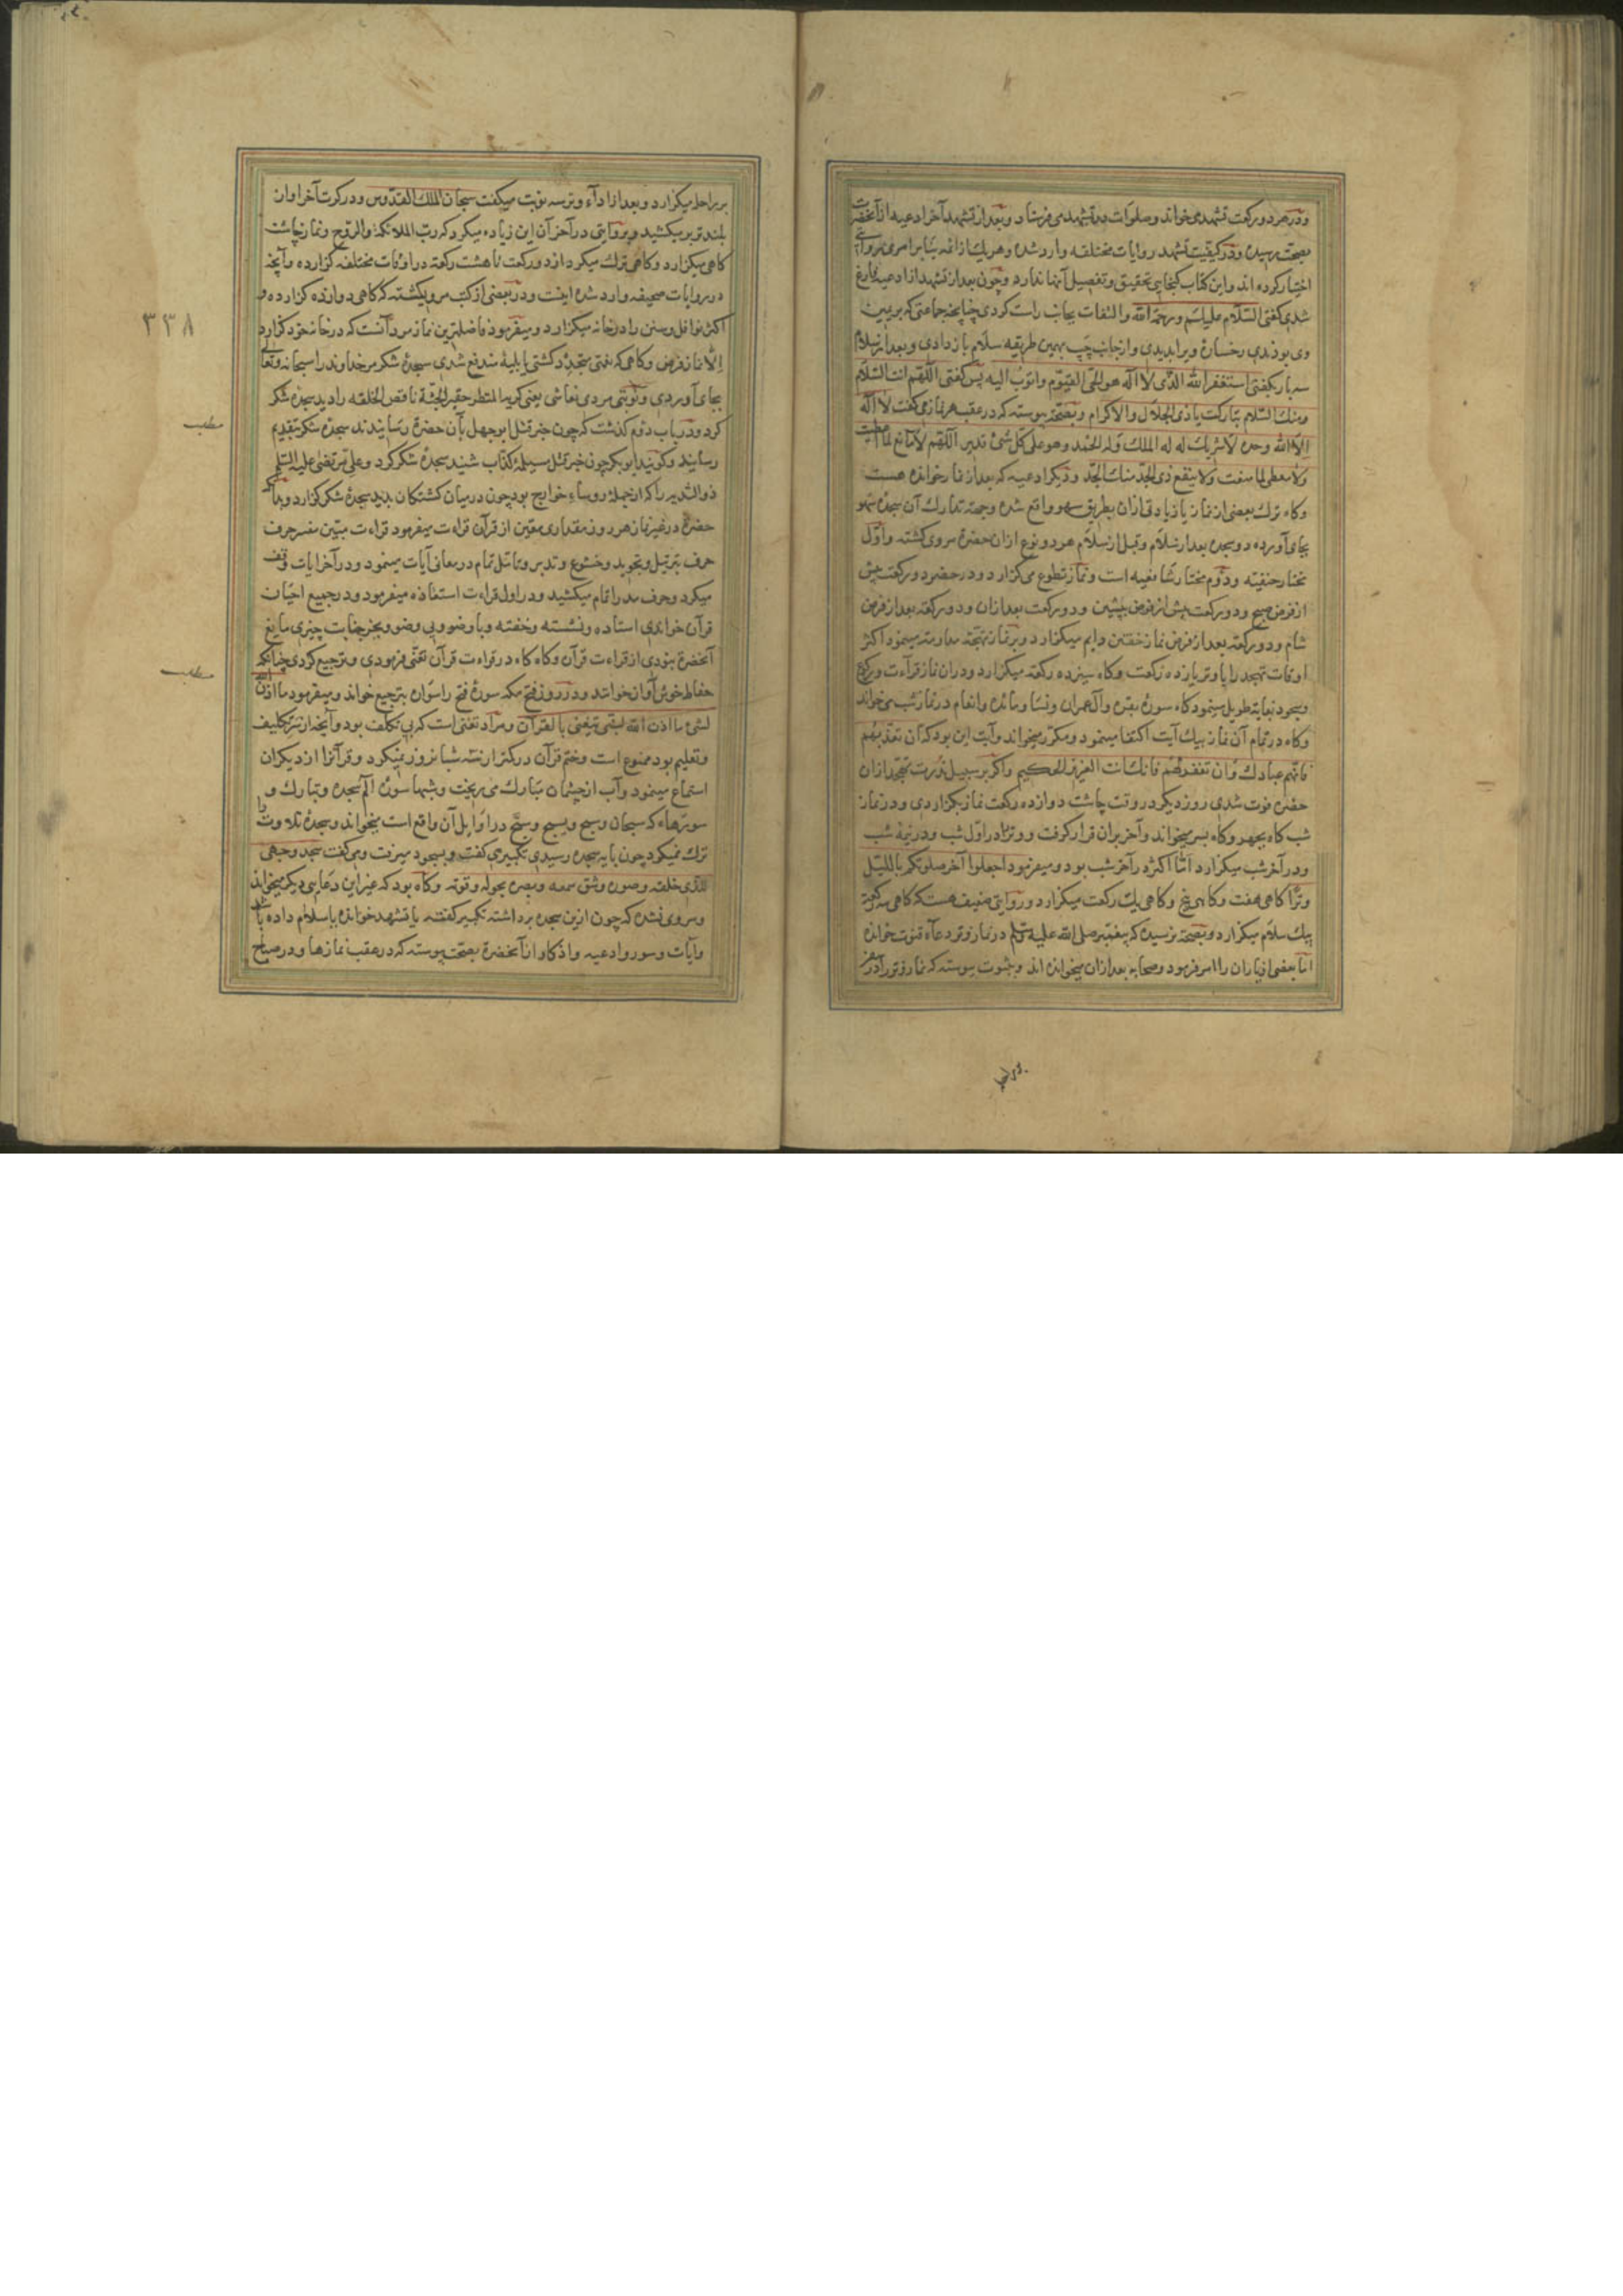 ودر هر دو رکعت تشهدی خواند وصلوات درتشهد می فرستاد وبعد از تشهد آخر ادعیه از آنحضرت
بصحت رسیده ودر کیفیت تشهد روایات مختلفه وارد شده وهریک از ائمه بنابر امری وروایتی
اختیار کرده اند واین کتاب کنجایی تحقیق وتفصیل آنها ندارد وچون بعد از تشهد از ادعیه فارغ
شدی کفتی السلام علیکم ورحمة الله والتفات بجانب راست کردی چنانچه جماعتی که بریمین
وی بودندی رخسارهٔ ویرا بدیدی واز جانب چپ بهمین طریقه سلام باز دادی وبعد از سلام
سه بار بکفتی استغفر الله الذی لا اله هو الحی القیوم واتوب الیه پس کفتی اللهم انت السلام
ومنک السلام تبارکت یاذی الجلال والاکرام وبصحة پیوسته که درعقب هر نماز می کفت لا اله
الا الله وحده لاشریک له له الملک وله الحمد وهو علی کل شئ قدیر اللهم لامانع لما اعطیت
ولا معطی لما منعت ولا ینفع ذی الجد منک الجد ودیکر ادعیه که بعد از نماز خوانده هست
وکاه ترک بعضی از نماز یا زیادتی از ان بطریق سهو واقع شده وجهة تدارک آن سجدهٔ سهو
بجای آورده دو سجده بعد از سلام وقبل از سلام هر دو نوع ازان حضرة مروی کشته واول
مختار حنفیه ودوم مختار شافعیه است ونماز تطوع می کزارد ودر حضر دو رکعت پیش
از فرض صبح ودو رکعت پیش از فرض پیشین ودو رکعت بعد ازان ودو رکعة بعد از فرض
شام ودو رکعة بعد از فرض نماز خفتن دایم میکزارد وبر نماز تهجد مداومة مینمود اکثر
اوقات تهجد را با وتر یازده رکعت وکاه سیزده رکعة میکزارد ودران نماز قراءت ورکوع
وسجود بغایة طویل مینمود کاه سورهٔ بقره وآل عمران ونسا ومائده وانعام در نماز شب می خواند
وکاه درتمام آن نماز بیک آیت اکتفا مینمود ومکرر میخواند وآیت این بود که ان تعذبهم
فانهم عبادک وان تغفر لهم فانک انت العزیز الحکیم واکر بر سبیل ندرت تهجد ازان
حضرة فوت شدی روز دیکر در وقت چاشت دوازده رکعت نماز بکزاردی ودر نماز
شب کاه بجهر وکاه بسر میخواند وآخر بران قرار کرفت ووتر را در اول شب ودر نیمهٔ شب
ودر آخر شب میکزارد اما اکثر در آخر شب بود ومیفرمود اجعلوا آخر صلوتکم باللیل
وترا کاهی هفت وکاهی پنج وکاهی یک رکعت میکزارد ودر روایتی ضعیف هست که کاهی سه رکعة
بیک سلام میکزارد وبصحة نرسیده که پیغمبر صلی الله علیه وسلم درنماز وتر دعاء قنوت خوانده
اما بعضی از یاران را امر فرمود وصحابه بعد ازان میخوانده اند وبثبوت پیوسته که نماز وتر را در سفر
بر راحله میکزارد وبعد از اداء وتر سه نوبت میکفت سبحان الملک القدوس ودر کرت آخر اوان
بلند تر بر میکشید وبروایتی در آخر آن این زیاده میکرد که رب الملائکة والروح ونماز چاشت
کاهی میکزارد وکاهی ترک میکرد از دو رکعت تا هشت رکعة در اوقات مختلفه کزارده وآنچه
در روایات صحیحه وارد شده اینست ودر بعضی از کتب مرویکشته که کاهی دوازده کزارده و
اکثر نوافل وسنن را درخانه میکزارد ومیفرمود فاضلترین نماز مرد آنست که درخانه خود کزارد
الا نماز فرض وکاهی که نعمتی متجدد کشتی یا بلیهٔ مندفع شدی سجدهٔ شکر مر خداوند را سبحانه وتعالی
بجای آوردی ونوبتی مردی نغاشی یعنی کریه المنظر حقیر الجثة ناقص الخلقه را دید سجدهٔ شکر
کرد ودر باب دوم کذشت که چون خبر قتل ابوجهل بآن حضرة رسانیدند سجدهٔ شکر بتقدیم
رسانید وکویند ابوبکر چون خبر قتل مسیلمهٔ کذاب شنید سجدهٔ شکر کرد وعلی مرتضی علیه السلم
ذوالثدیه را که از جملهٔ روساء خوارج بود چون درمیان کشتکان بدید سجدهٔ شکر کزارد
حضرة درغیر نماز هر روز مقداری معین از قرآن قراءت میفرمود قراءت مبین مفسر حرف
حرف بترتیل وتجوید وخشوع وتدبر وتامل تمام در معانی آیات مینمود ودر آخر ایات وقف
میکرد وحرف مد را تمام میکشید ودر اول قراءت استعاذه میفرمود ودر جمیع احیان
قرآن خواندی استاده ونشسته وخفته وبا وضو وبی وضو وبجز جنابت چیزی مانع
آنحضرة نبودی از قراءت قرآن وکاه کاه در قراءت قرآن تغنی فرمودی وترجیع کردی چنانکه
حفاظ خوش آواز خوانند ودر روز فتح مکه سورهٔ فتح را سواره بترجیع خواند ومیفرمود ما اذن
لشئ ما اذن الله لنبی یتغنی بالقرآن ومراد تغنی است که بی تکلف بود وآنچه از سر تکلیف
وتعلیم بود ممنوع است وختم قرآن در کمتر از سه شبانروز نمیکرد وقرآن را از دیکران
استماع مینمود وآب از چشمان مبارک می ریخت وشبها سورهٔ الم سجده وتبارک و
سورهاء که سبحان وسبح ویسبح وسبح در اوایل آن واقع است میخواند وسجدهٔ تلاوت را
ترک نمیکرد چون بایهٔ سجده رسیدی تکبیری کفت وبسجود میرفت ومی کفت سجد وجهی
للذی خلقه وصوره وشق سمعه وبصره بحوله وقوته وکاه بود که غیر این دعایی دیکر میخواند
ومروی نشده که چون ازین سجده بر داشته تکبیر کفته یا تشهد خوانده یا سلام داده باشد
وآیات وسور وادعیه واذکار از آنحضرة بصحت پیوسته که درعقب نمازها ودر صباح
۳۳۸
مطلب
مطلب